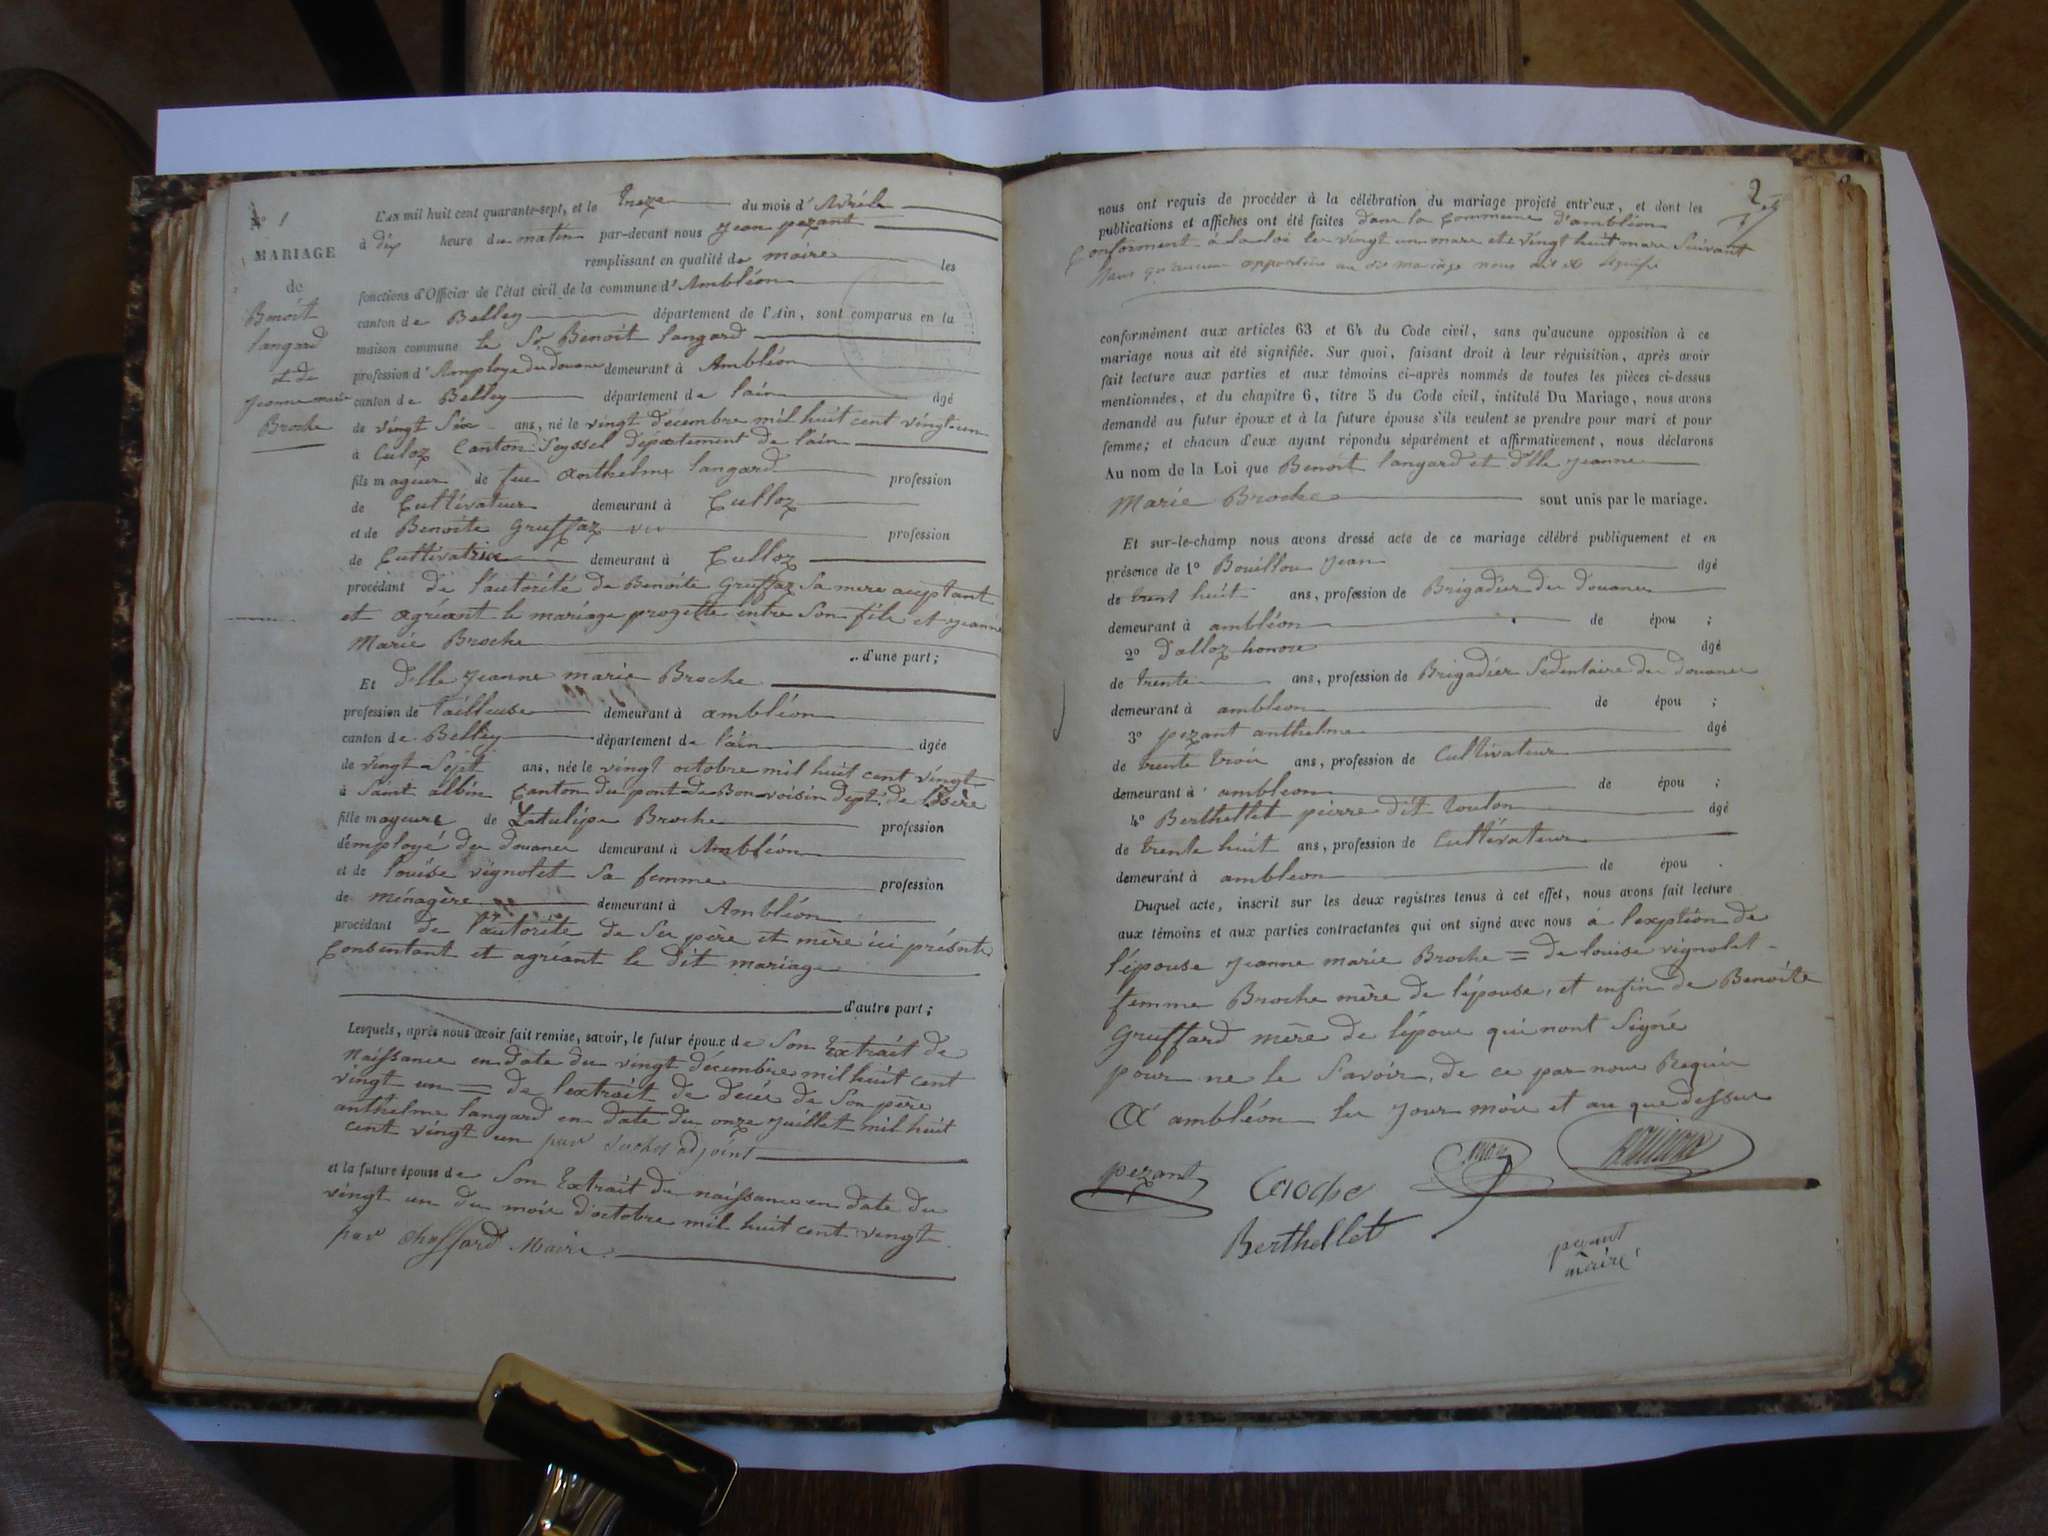 N° 1
MARIAGE
de
Benoit
langard
et de
Jeanne marie
Broche
L'AN mil huit cent quarante-sept, et le treze du mois d'Avrile
à dix heure du matin par-devant nous Jean pezant
remplissant en qualité de maire les
fonctions d'Officier de l'état civil de la commune d'Ambléon
canton de Belley département de l'Ain, sont comparus en la
maison commune le Sr Benoit langard
profession d'Amploye du Douane demeurant à Ambléon
canton de Belley département de lain âgé
de vingt Six ans, né le vingt décembre mil huit cent vingt un
à Culoz Canton Seyssel département de lain
fils mageur de feu Anthelme langard profession
de Cultivateur demeurant à Culloz
et de Benoite Gruffaz profession
de Cultivatrice demeurant à Culloz
procédant de l'autorité de Benoite Gruffaz Sa mere aceptant
et agréant le mariage progette entre Son fils et Jeanne
Marie Broche
d'une part;
Et Dlle Jeanne marie Broche
profession de tailleuse demeurant à ambléon
canton de Belley département de l'ain âgée
de vingt Sept ans, née le vingt octobre mil huit cent vingt
à Saint albin Canton du pont de Bonvoisin dept. de l'Isère
fille mageure de Latulipe Broche profession
d'employé du douane demeurant à Ambléon
et de louise vignolet Sa femme profession
de ménagère demeurant à Ambléon
procédant de l'autorité de Ses père et mère ici présnte
Consentant et agréant le dit mariage
d'autre part;
Lesquels, après nous avoir fait remise, savoir, le futur époux de Son Extrait de
Naissance en date du vingt décembre mil huit cent
vingt un = de l'extrait de décès de Son père
anthelme langard en date du onze Juillet mil huit
cent vingt un par adjoint
et la future épouse de Son Extrait de naissance en date du
vingt un du mois d'octobre mil huit cent vingt
par Choffard Maire
2
nous ont requis de procéder à la célébration du mariage projeté entr'eux, et dont les
publications et affiches ont été faites dans la Commune d'ambléon
Conforment à la loi le vingt un mars et vingt huit mars Suivant
Sans qu'aucune opposition au dit mariage nous ait été Signifié
conformément aux articles 63 et 64 du Code civil, sans qu'aucune opposition à ce
mariage nous ait été signifiée. Sur quoi, faisant droit à leur réquisition, après avoir
fait lecture aux parties et aux témoins ci-après nommés de toutes les pièces ci-dessus
mentionnées, et du chapitre 6, titre 5 du Code civil, intitulé Du Mariage, nous avons
demandé au futur époux et à la future épouse s'ils veulent se prendre pour mari et pour
femme; et chacun d'eux ayant répondu séparément et affirmativement, nous déclarons
Au nom de la Loi que Benoit langard et Dlle Jeanne
Marie Broche sont unis par le mariage.
Et sur-le-champ nous avons dressé acte de ce mariage célébré publiquement et en
présence de 1° Bouillou Jean âgé
de trent huit ans, profession de Brigadier des douanes
demeurant à ambléon de épou ;
2° Dalloz honore âgé
de trente ans, profession de Brigadier Sedentaire des douanes
demeurant à ambleon de épou ;
3° pezant anthelme âgé
de trente trois ans, profession de Cultivateur
demeurant à ambleon de épou ;
4° Berthellet pierre dit toulon âgé
de trente huit ans, profession de Cultivateur
demeurant à ambleon de épou .
Duquel acte, inscrit sur les deux registres tenus à cet effet, nous avons fait lecture
aux témoins et aux parties contractantes qui ont signé avec nous à l'exption de
l'épouse Jeanne marie Broche = de louise vignolet
femme Broche mère de l'épouse, et enfin de Benoite
Gruffard mère de l'époux qui nont Signé
pour ne le Savoir, de ce par nous Requis
A ambléon les Jour mois et an que dessus
pezant
Berthellet
pezant
maire